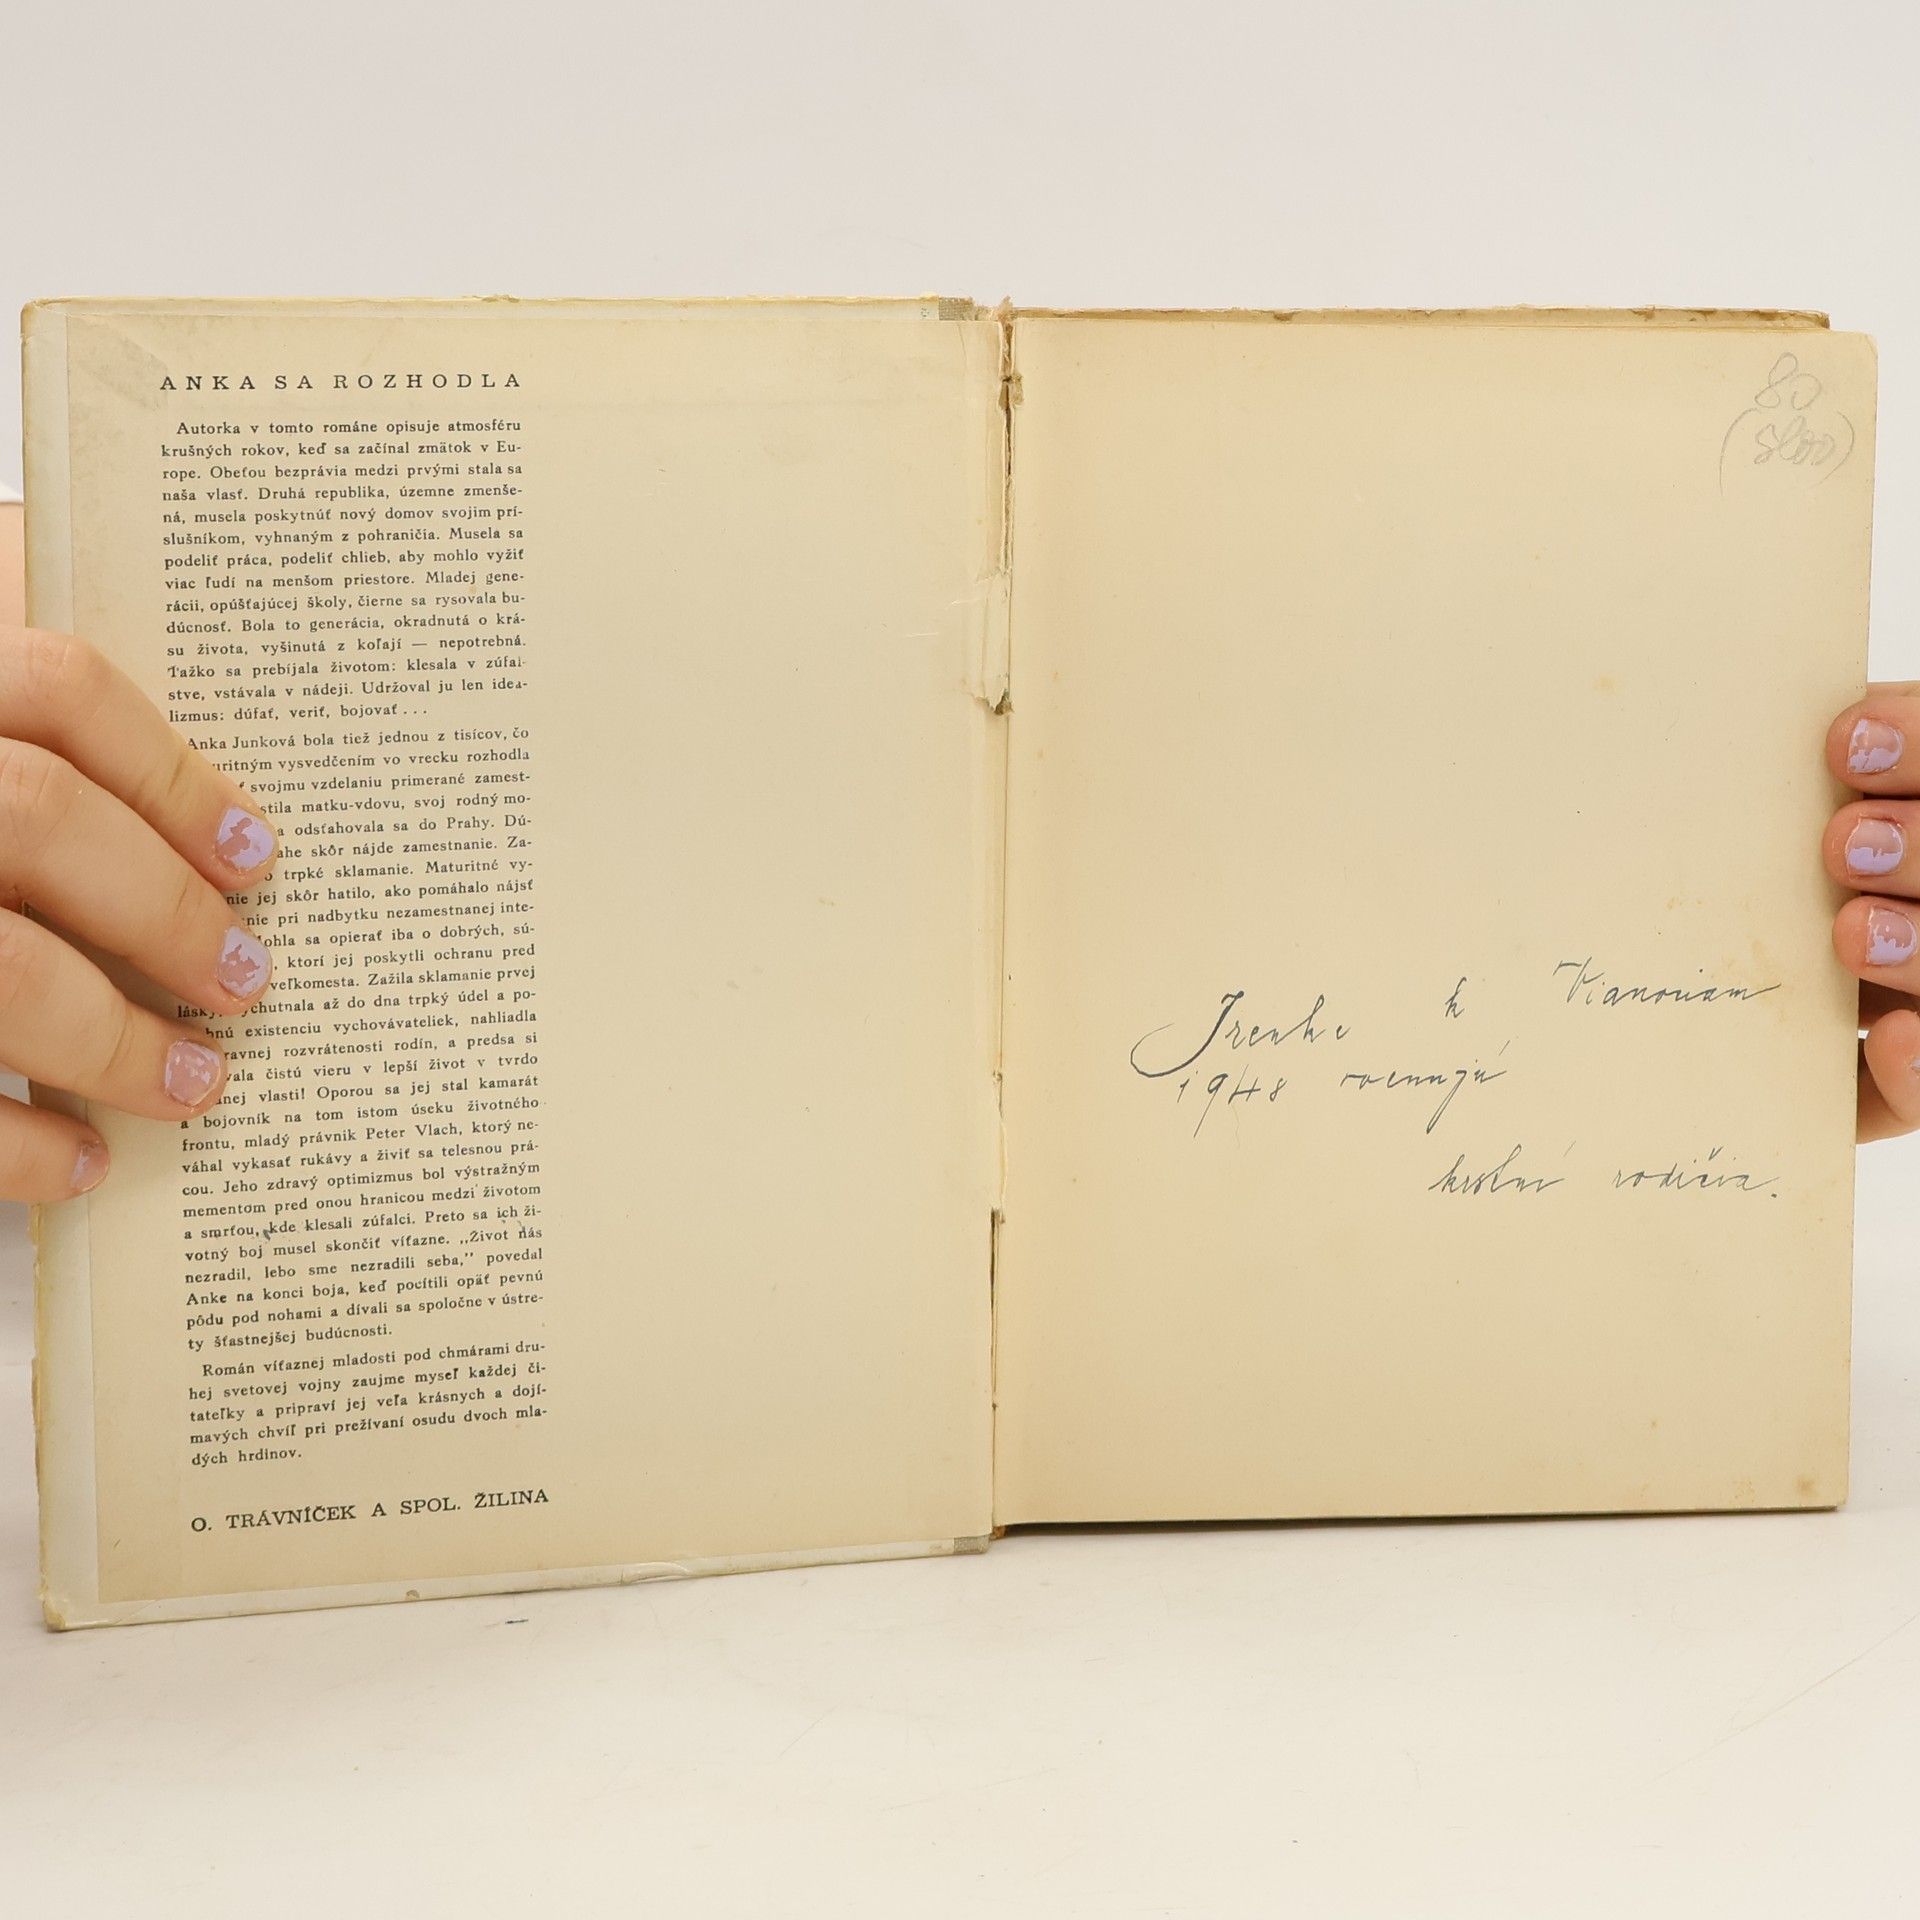 ANKA SA ROZHODLA
Autorka v tomto románe opisuje atmosféru
krušných rokov, keď sa začínal zmätok v Eu-
rope. Obeťou bezprávia medzi prvými stala sa
naša vlasť. Druhá republika, územne zmenše-
ná, musela poskytnúť nový domov svojim prí-
slušníkom, vyhnaným z pohraničia. Musela sa
podeliť práca, podeliť chlieb, aby mohlo vyžiť
viac ľudí na menšom priestore. Mladej gene-
rácii, opúšťajúcej školy, čierne sa rysovala bu-
dúcnosť. Bola to generácia, okradnutá o krá-
su života, vyšinutá z koľají — nepotrebná.
Ťažko sa prebíjala životom: klesala v zúfal-
stve, vstávala v nádeji. Udržoval ju len idea-
lizmus: dúfať, veriť, bojovať ...
Anka Junková bola tiež jednou z tisícov, čo
uritným vysvedčením vo vrecku rozhodla
ť svojmu vzdelaniu primerané zamest-
stila matku-vdovu, svoj rodný mo-
a odsťahovala sa do Prahy. Dú-
ahe skôr nájde zamestnanie. Za-
o trpké sklamanie. Maturitné vy-
nie jej skôr hatilo, ako pomáhalo nájsť
nie pri nadbytku nezamestnanej inte-
ohla sa opierať iba o dobrých, sú-
, ktorí jej poskytli ochranu pred
veľkomesta. Zažila sklamanie prvej
lásky, ychutnala až do dna trpký údel a po-
bnú existenciu vychovávateliek, nahliadla
ravnej rozvrátenosti rodín, a predsa si
vala čistú vieru v lepší život v tvrdo
anej vlasti! Oporou sa jej stal kamarát
a bojovník na tom istom úseku životného
frontu, mladý právnik Peter Vlach, ktorý ne-
váhal vykasať rukávy a živiť sa telesnou prá-
cou. Jeho zdravý optimizmus bol výstražným
mementom pred onou hranicou medzi životom
a smrťou, kde klesali zúfalci. Preto sa ich ži-
votný boj musel skončiť víťazne. „Život nás
nezradil, lebo sme nezradili seba,” povedal
Anke na konci boja, keď pocítili opäť pevnú
pôdu pod nohami a dívali sa spoločne v ústre-
ty šťastnejšej budúcnosti.
Román víťaznej mladosti pod chmárami dru-
hej svetovej vojny zaujme myseľ každej či-
tateľky a pripraví jej veľa krásnych a dojí-
mavých chvíľ pri prežívaní osudu dvoch mla-
dých hrdinov.
O. TRÁVNÍČEK A SPOL. ŽILINA
80
Irenke k Vianociam
1948 venujú
krstní rodičia.